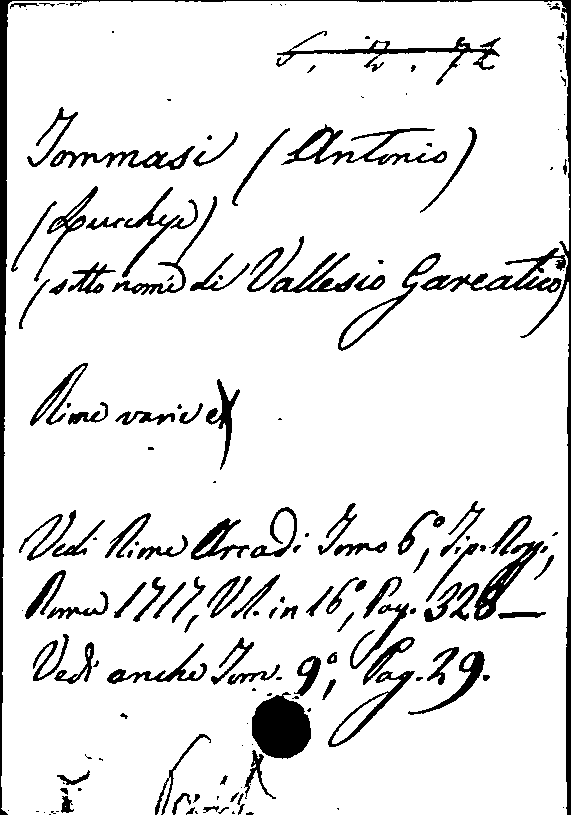 6. 2. 72
Tommasi (Antonio)
(Lucchese)
(sotto nome di Vallesio Gareatico)
Rime varie
Vedi Rime Arcadi Tomo 6°, Tip. Rossi,
Roma 1717, Vol. in 16°, Pag. 328 —
Vedi anche Tom. 9°, Pag. 29.